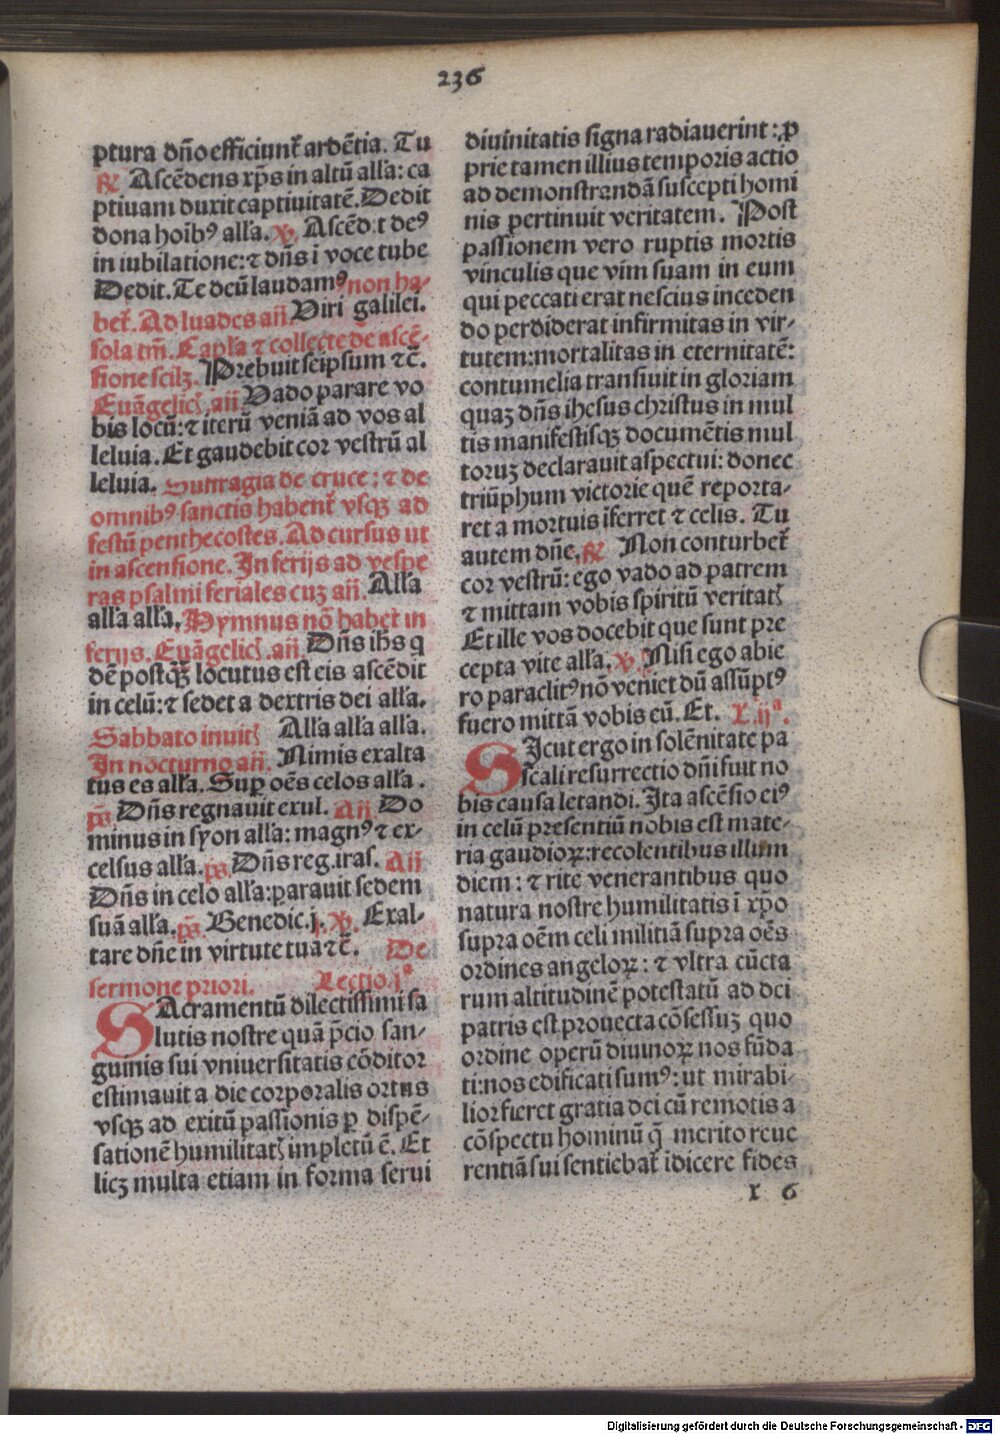 236
ptura dño efficiunt᷑ ardētia. Tu
℟ Ascēdens xp̄s in altū alľa: ca
ptiuam duxit captiuitatē. Dedit
dona hoı̄bꝰ alľa. ℣. Ascēd:t deꝰ
in iubilatione: ⁊ dn̄s ī voce tube
Dedit. Te deū laudamꝰ non ha-
bet᷑. Ad laudes añ. Viri galilei.
sola tm̄. Capľa ⁊ collecte de ascē-
sione scilꝫ. Prebuit seipsum ⁊c̄.
Euāgelicꝭ. añ Vado parare vo
bis locū: ⁊ iterū veniā ad vos al
leluia. Et gaudebit cor vestrū al
leluia. Suffragia de cruce: ⁊ de
omnibꝰ sanctis habent᷑ vsqꝫ ad
festū penthecostes. Ad cursus ut
in ascensione. In ferijs ad vespe
ras psalmi feriales cuꝫ añ. Alľa
alľa alľa. Hymnus nō habet᷑ in
ferijs. Euāgelicꝭ. añ. Dn̄s ih̄s q
dē postqꝫ̄ locutus est eis ascēdit
in celū: ⁊ sedet a dextris dei alľa.
Sabbato inuitꝭ Alľa alľa alľa.
In nocturno añ. Nimis exalta
tus es alľa. Suꝑ oēs celos alľa.
p̄s. Dn̄s regnauit exul. Añ Do
minus in syon alľa: magnꝰ ⁊ ex-
celsus alľa. p̄s. Dn̄s reg. iraſ. Añ
Dn̄s in celo alľa: parauit sedem
suā alľa. p̄s. Benedic. j. ℣. Exal-
tare dn̄e in virtute tua ⁊c̄. De
sermone priori. Lectio .jᵃ
SAcramentū dilectissimi sa
lutis nostre quā p̄cio san-
guinis sui vniuersitatis cōditor
estimauit a die corporalis ortus
vsqꝫ ad exitū passionis ꝑ dispē-
sationē humilitatꝭ impletū ē. Et
licꝫ multa etiam in forma serui
diuinitatis signa radiauerint: ꝓ
prie tamen illius temporis actio
ad demonstrandā suscepti homi
nis pertinuit veritatem. Post
passionem vero ruptis mortis
vinculis que vim suam in eum
qui peccati erat nescius inceden
do perdiderat infirmitas in vir-
tutem: mortalitas in eternitatē:
contumelia transiuit in gloriam
quaꝫ dn̄s ihesus christus in mul
tis manifestisqꝫ documētis mul
toruꝫ declarauit aspectui: donec
triūphum victorie quē reporta-
ret a mortuis īferret ⁊ celis. Tu
autem dn̄e. ℟ Non conturbet᷑
cor vestrū: ego vado ad patrem
⁊ mittam vobis spiritū veritatꝭ
Et ille vos docebit que sunt pre
cepta vite alľa. ℣. Nisi ego abie
ro paraclitꝰ nō veniet dū assūptꝰ
fuero mittā vobis eū. Et. L. ijᵃ.
SIcut ergo in solēnitate pa
scali resurrectio dn̄i fuit no
bis causa letandi. Ita ascēsio eiꝰ
in celū presentiū nobis est mate-
ria gaudioꝝ: recolentibus illum
diem: ⁊ rite venerantibus quo
natura nostre humilitatis ī xp̄o
supra oēm celi militiā supra oēs
ordines angeloꝝ: ⁊ vltra cūcta
rum altitudinē potestatū ad dei
patris est prouecta cōsessuꝫ quo
ordine operū diuinoꝝ nos fūda
ti: nos edificati sumꝰ: ut mirabi-
lior fieret gratia dei cū remotis a
cōspectu hominū q̄ merito reue
rentiā sui sentiebat᷑ īdicere fides
x 6
Digitalisierung gefördert durch die Deutsche Forschungsgemeinschaft - DFG